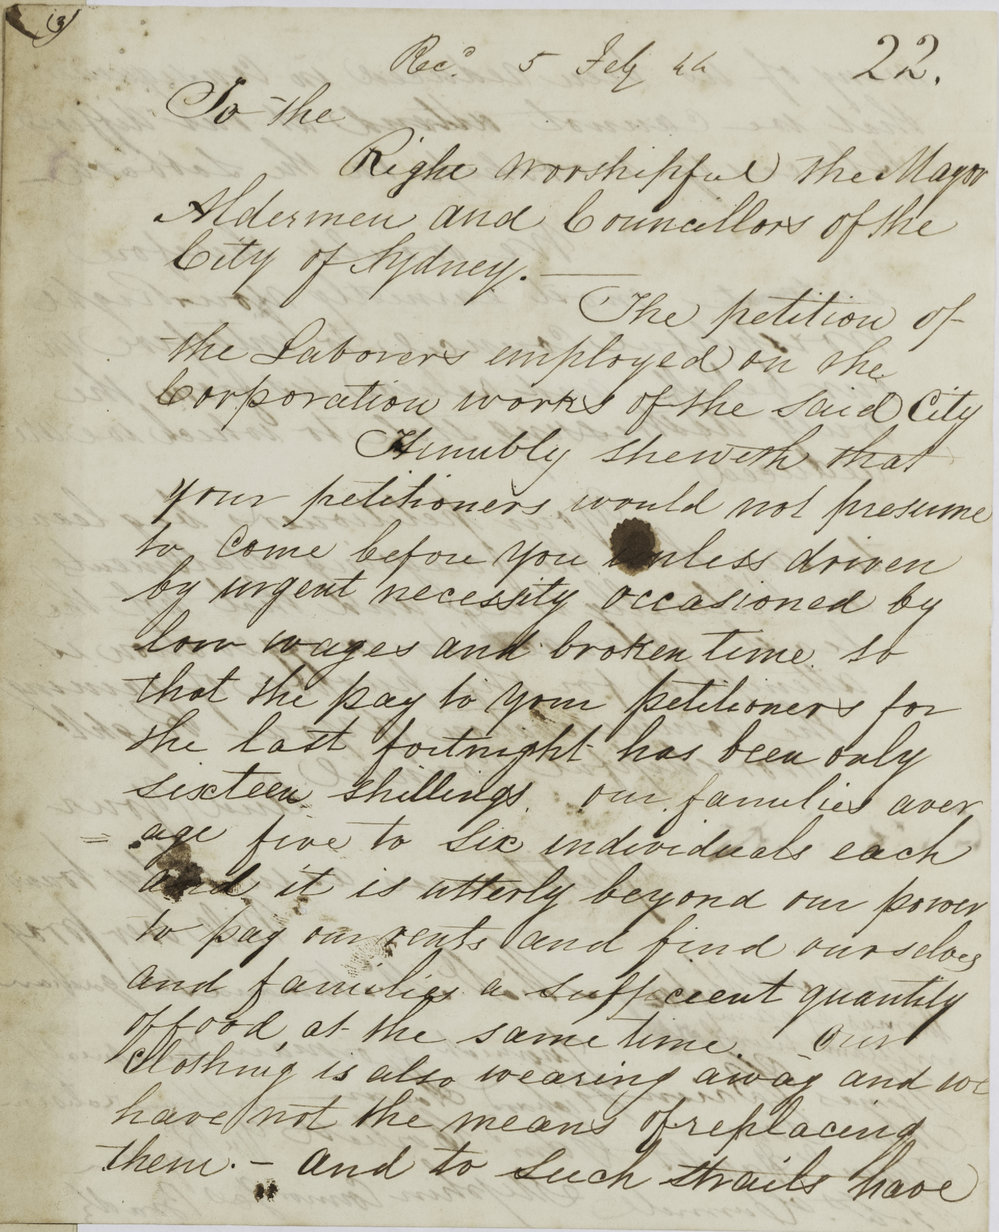 (3)
Recd. 5 Feby 44
22.
To the
Right Worshipful the Mayor
Aldermen and Councillors of the
City of Sydney. —
The petition of
the Laborers employed on the
Corporation works of the said City
Humbly sheweth that
your petitioners would not presume
to come before you unless driven
by urgent necessity occasioned by
low wages and broken time so
that the pay to your petitioners for
the last fortnight has been only
sixteen shillings. our families aver
= age five to six individuals each
and it is utterly beyond our power
to pay our rents and find ourselves
and families a sufficient quantity
of food, at the same time. Our
Clothing is also wearing away and we
have not the means of replacing
them. – and to such straits have